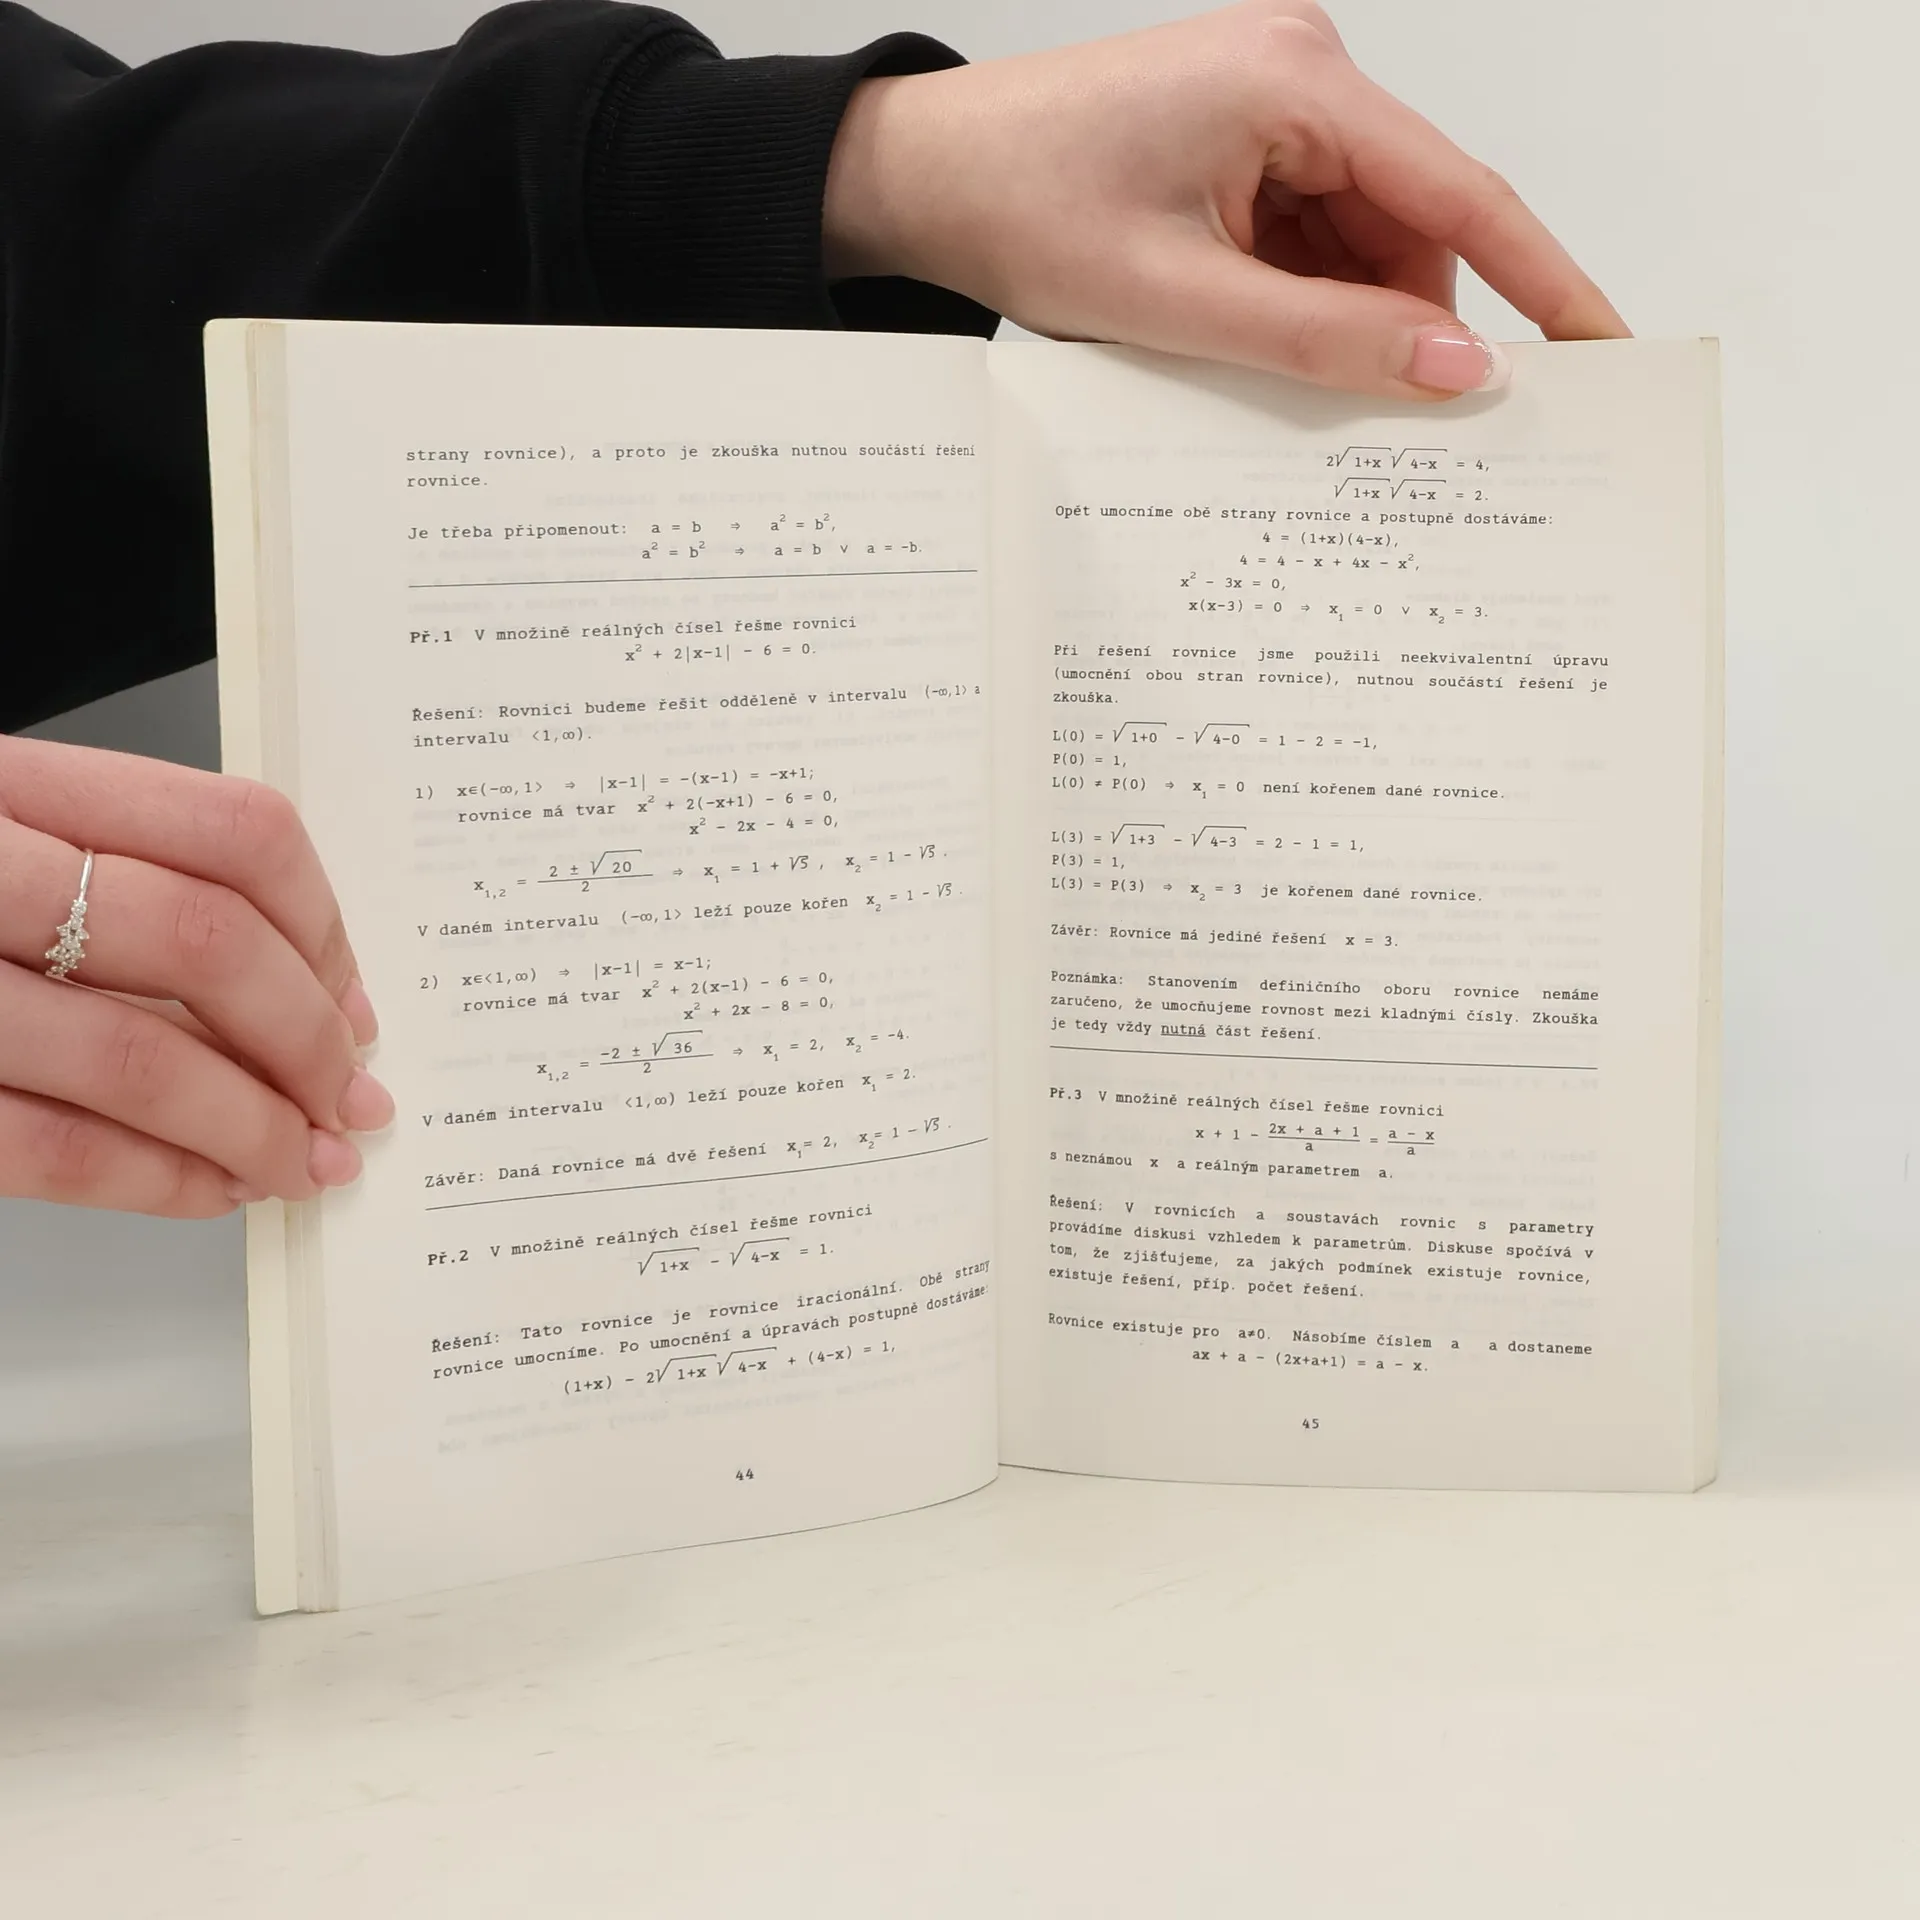 strany rovnice), a proto je zkouška nutnou součástí řešení
rovnice.
Je třeba připomenout: a = b ⇒ a² = b²,
a² = b² ⇒ a = b ∨ a = -b.
Př.1 V množině reálných čísel řešme rovnici
x² + 2|x-1| - 6 = 0.
Řešení: Rovnici budeme řešit odděleně v intervalu (-∞,1> a
intervalu <1,∞).
1) x∈(-∞,1> ⇒ |x-1| = -(x-1) = -x+1;
rovnice má tvar x² + 2(-x+1) - 6 = 0,
x² - 2x - 4 = 0,
x₁,₂ = (2 ± √20)/2 ⇒ x₁ = 1 + √5, x₂ = 1 - √5.
V daném intervalu (-∞,1> leží pouze kořen x₂ = 1 - √5.
2) x∈<1,∞) ⇒ |x-1| = x-1;
rovnice má tvar x² + 2(x-1) - 6 = 0,
x² + 2x - 8 = 0,
x₁,₂ = (-2 ± √36)/2 ⇒ x₁ = 2, x₂ = -4.
V daném intervalu <1,∞) leží pouze kořen x₁ = 2.
Závěr: Daná rovnice má dvě řešení x₁= 2, x₂= 1 - √5.
Př.2 V množině reálných čísel řešme rovnici
√1+x - √4-x = 1.
Řešení: Tato rovnice je rovnice iracionální. Obě strany
rovnice umocníme. Po umocnění a úpravách postupně dostáváme:
(1+x) - 2√1+x √4-x + (4-x) = 1,
44
2√1+x √4-x = 4,
√1+x √4-x = 2.
Opět umocníme obě strany rovnice a postupně dostáváme:
4 = (1+x)(4-x),
4 = 4 - x + 4x - x²,
x² - 3x = 0,
x(x-3) = 0 ⇒ x₁ = 0 ∨ x₂ = 3.
Při řešení rovnice jsme použili neekvivalentní úpravu
(umocnění obou stran rovnice), nutnou součástí řešení je
zkouška.
L(0) = √1+0 - √4-0 = 1 - 2 = -1,
P(0) = 1,
L(0) ≠ P(0) ⇒ x₁ = 0 není kořenem dané rovnice.
L(3) = √1+3 - √4-3 = 2 - 1 = 1,
P(3) = 1,
L(3) = P(3) ⇒ x₂ = 3 je kořenem dané rovnice.
Závěr: Rovnice má jediné řešení x = 3.
Poznámka: Stanovením definičního oboru rovnice nemáme
zaručeno, že umocňujeme rovnost mezi kladnými čísly. Zkouška
je tedy vždy nutná část řešení.
Př.3 V množině reálných čísel řešme rovnici
x + 1 - (2x + a + 1)/a = (a - x)/a
s neznámou x a reálným parametrem a.
Řešení: V rovnicích a soustavách rovnic s parametry
provádíme diskusi vzhledem k parametrům. Diskuse spočívá v
tom, že zjišťujeme, za jakých podmínek existuje rovnice,
existuje řešení, příp. počet řešení.
Rovnice existuje pro a≠0. Násobíme číslem a a dostaneme
ax + a - (2x+a+1) = a - x.
45